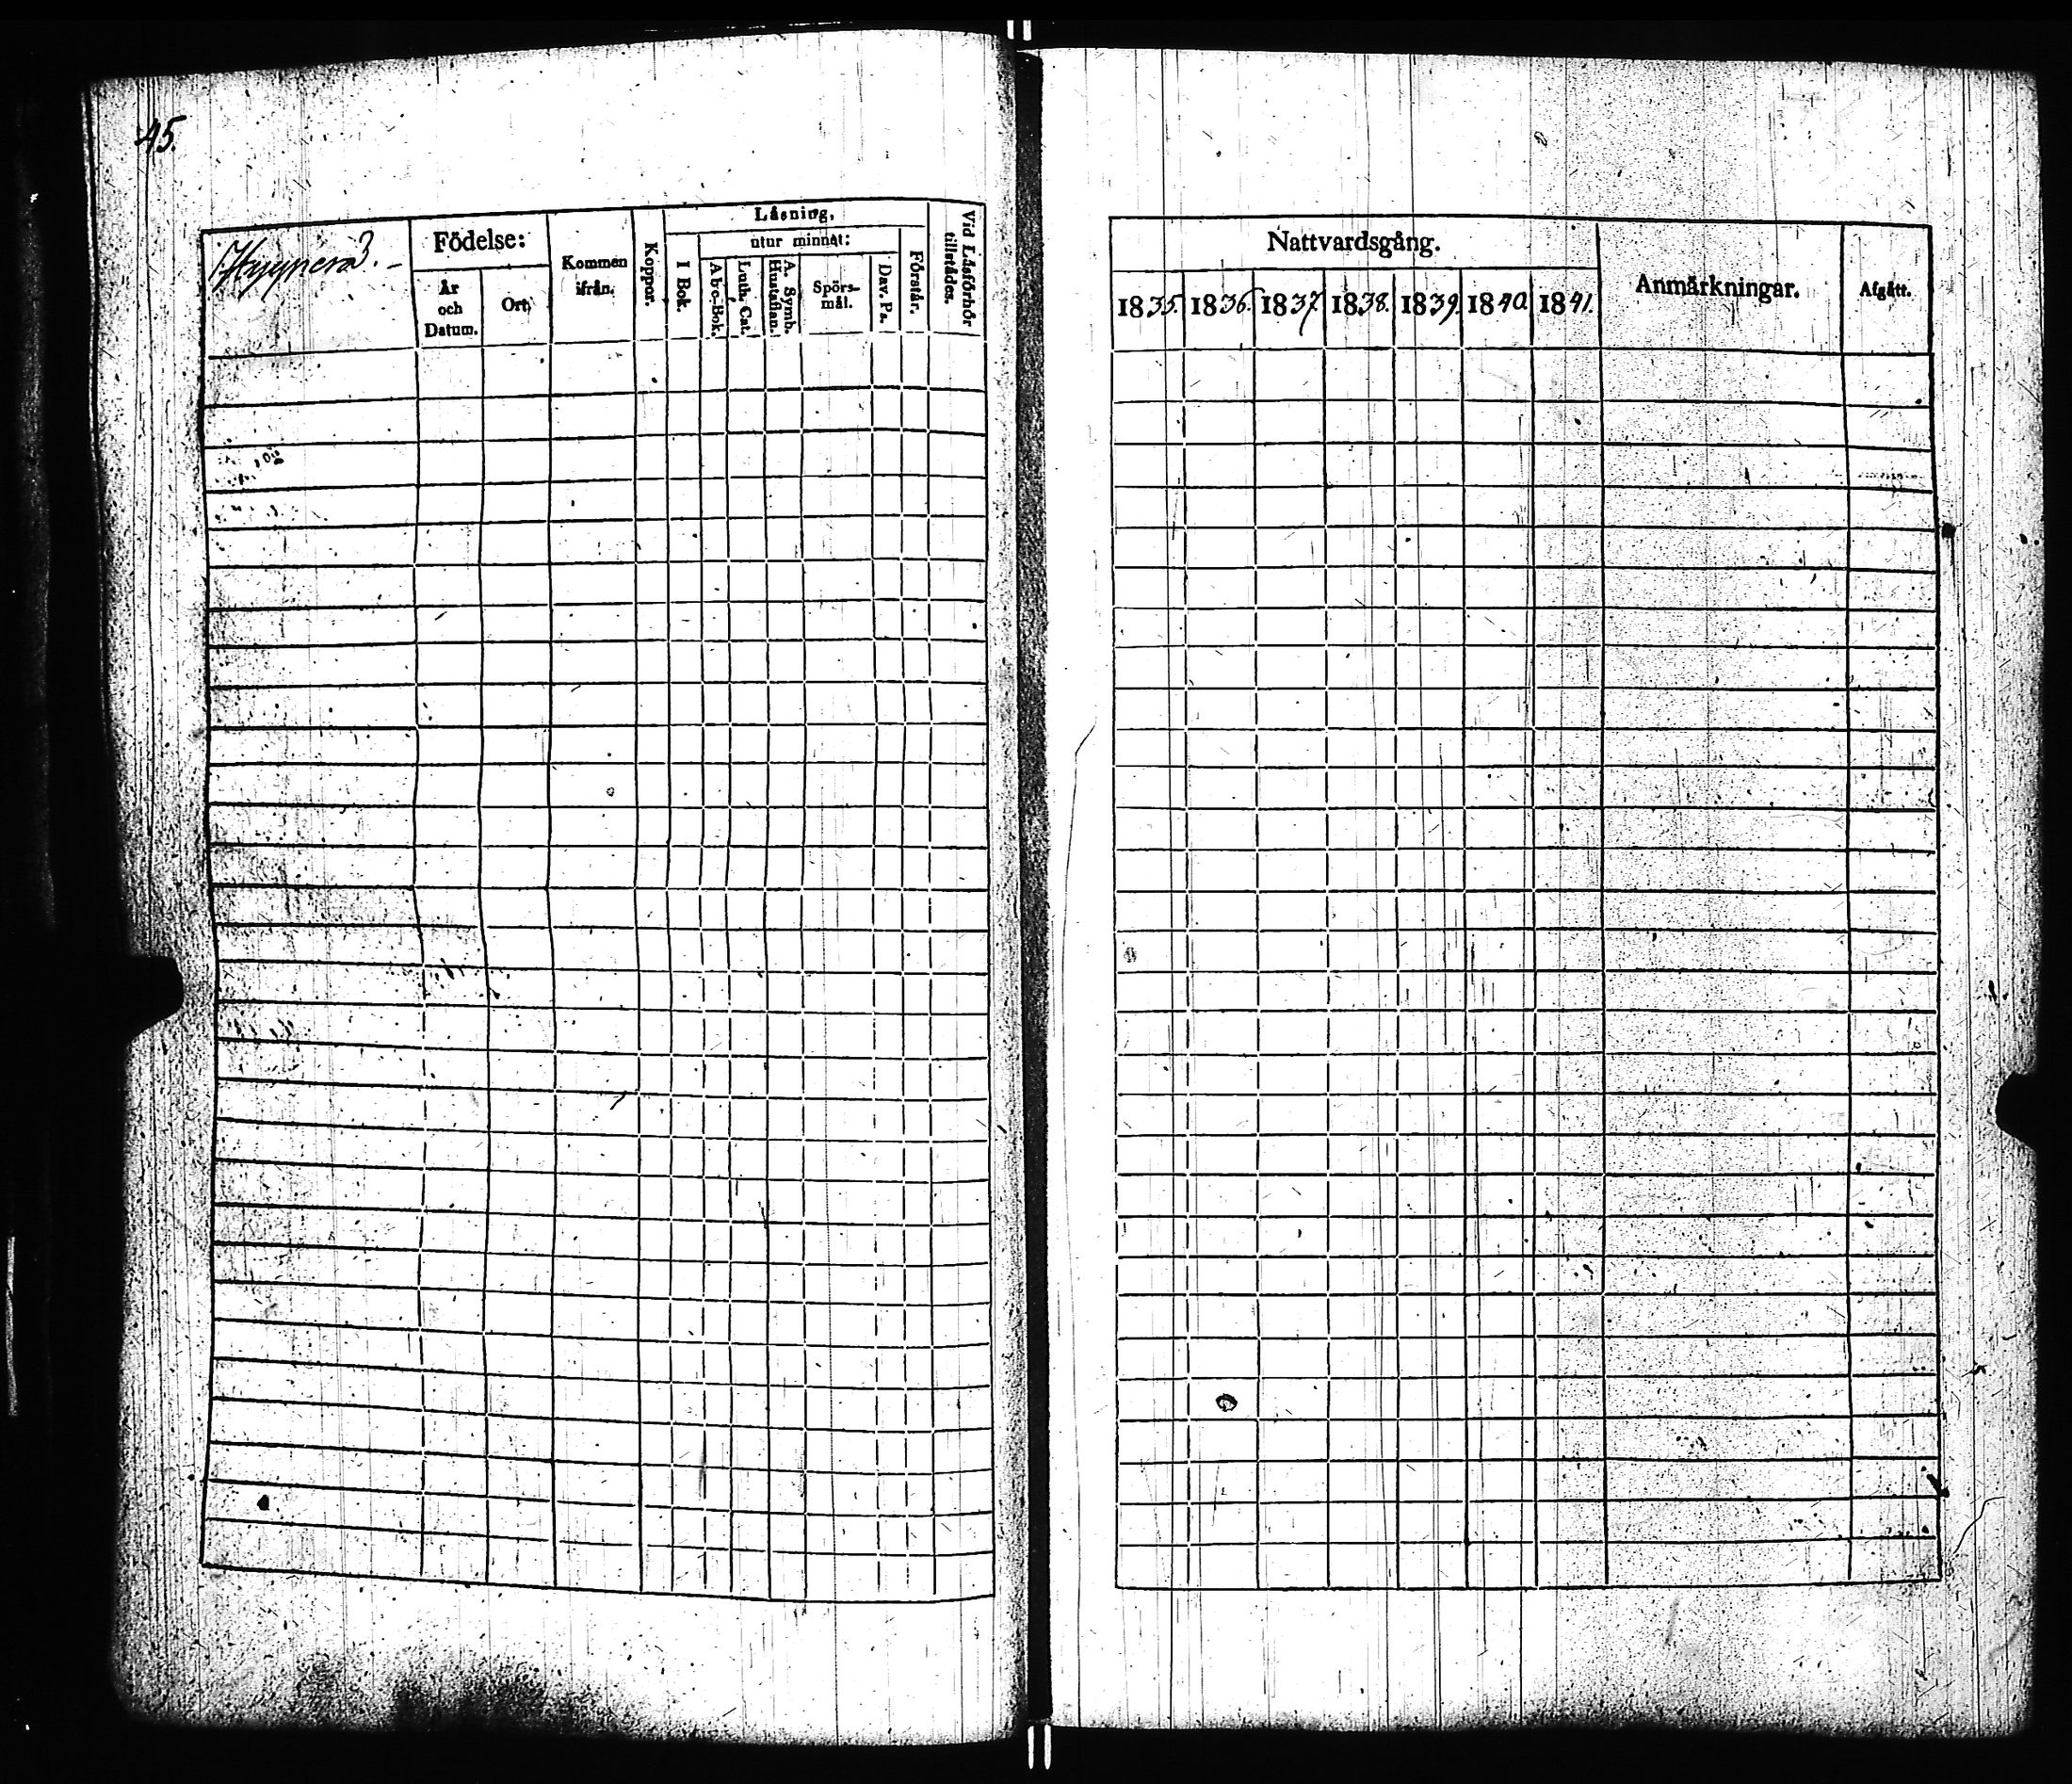 45.
Hyyperä 3.
Födelse:
År
och
Datum.
Ort.
Kommen
ifrån.
Koppor.
Låsning,
utur minnat:
I Bok.
Abc-Bok.
Luth. Cat.
A. Symb.
Hustaflan.
Spörs-
mål.
Dav. Ps.
Förstår.
Vid Läsförhör
tillstådes.
Nattvardsgång.
1835. 1836. 1837. 1838. 1839. 1840. 1841.
Anmärkningar.
Afgått.